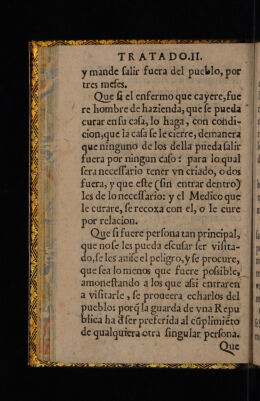 TRATADO.II.
y mande salir fuera del pueblo, por
tres meses.
Que si el enfermo que cayere, fue
re hombre de hazienda, que se pueda
curar en su casa, lo haga, con condi-
cion, que la casa se le cierre, demanera
que ninguno de los della pueda salir
fuera por ningun caso: para lo qual
sera necessario tener vn criado, o dos
fuera, y que este (sin entrar dentro)
les de lo necessario: y el Medico que
le curare, se recoxa con el, o le cure
por relacion.
Que si fuere persona tan principal,
que no se les pueda escusar ser visita-
do, se les auise el peligro, y se procure,
que sea lo menos que fuere possible,
amonestando a los que assi entraren
a visitarle, se proueera echarlos del
pueblo: porq̃ la guarda de vna Repu
blica ha d̃ ser preferida al cũplimiẽto
de qualquiera otra singular persona.
Que